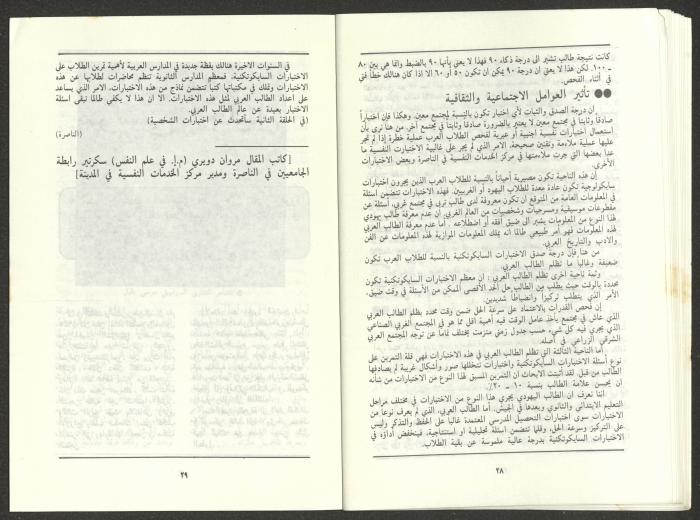 كانت نتيجة طالب تشير الى درجة ذكاء ٩٠ فهذا لا يعني بأنها ٩٠ بالضبط وانما هي بين ٨٠
ـ ١٠٠. لكن هذا لا يعني ان درجة ٩٠ يمكن ان تكون ٥٠ أو ٦٠ الا اذا كان هنالك خطأ فني
في أثناء الفحص.
●● تأثير العوامل الاجتماعية والثقافية
ان درجة الصدق والثبات لأي اختبار تكون بالنسبة لمجتمع معين. وهكذا فإن اختباراً
صادقاً وثابتاً في مجتمع معين لا يعتبر بالضرورة صادقاً وثابتاً في مجتمع آخر. من هنا نرى بأن
استعمال اختبارات نفسية اجنبية أو عبرية لفحص الطلاب العرب عملية خطرة إذا لم تجر
عليها عملية ملاءمة وتقنين صحيحة، الامر الذي لم يجر على غالبية الاختبارات النفسية ما
عدا بعضها التي جرت ملاءمتها في مركز الخدمات النفسية في الناصرة وبعض الاختبارات
الأخرى.
إن هذه الناحية تكون مصيرية أحياناً بالنسبة للطلاب العرب الذين يجرون اختبارات
سايكولوجية تكون عادة معدة للطلاب اليهود أو الغربيين. فهذه الاختبارات تتضمن أسئلة
في المعلومات العامة من المتوقع أن تكون معروفة لدى طالب تربى في مجتمع غربي، أسئلة عن
مقطوعات موسيقية ومسرحيات وشخصيات من العالم الغربي. ان عدم معرفة طالب يهودي
لهذا النوع من المعلومات يشير الى ضيق أفقه أو اطلاعه. أما عدم معرفة الطالب العربي
لهذه المعلومات فهو أمر طبيعي طالما انه يملك المعلومات الموازية لهذه المعلومات عن الفن
والادب والتاريخ العربي.
من هنا فإن درجة صدق الاختبارات السايكوتكنية بالنسبة للطلاب العرب تكون
ضعيفة وغالباً ما تظلم الطالب العربي.
وثمة ناحية أخرى تظلم الطالب العربي: ان معظم الاختبارات السايكوتكنية تكون
محددة بالوقت حيث يطلب من الطالب حل الحد الأقصى الممكن من الأسئلة في وقت ضيق.
الأمر الذي يتطلب تركيزاً وانضباطاً شديدين.
إن فحص القدرات بالاعتماد على سرعة الحل ضمن وقت محدد يظلم الطالب العربي
الذي عاش في مجتمع يأخذ عامل الوقت فيه أهمية أقل مما هو في المجتمع الغربي الصناعي
الذي يجري فيه كل شيء حسب جدول زمني ملتزمت يختلف تماماً عن توجه المجتمع العربي
الشرقي الزراعي في أصله.
أما الناحية الثالثة التي تظلم الطالب العربي في هذه الاختبارات فهي قلة التمرين على
نوع أسئلة الاختبارات السايكوتكنية واختبارات تتخللها صور وأشكال غريبة لم يصادفها
الطالب من قبل. لقد أثبتت الابحاث ان التمرين المسبق لهذا النوع من الاختبارات من شأنه
ان يحسن علامة الطالب بنسبة ١٠ ـ ٢٠٪.
اننا نعرف ان الطالب اليهودي يجري هذا النوع من الاختبارات في مختلف مراحل
التعليم الابتدائي والثانوي وبعدها في الجيش. أما الطالب العربي، الذي لم يعرف نوعاً من
الاختبارات سوى اختبارات التحصيل المدرسي المعتمدة غالباً على الحفظ والتذكر وليس
على التركيز وسرعة الحل، وقلما تتضمن اسئلة تحليلية أو استنتاجية، فينخفض أداؤه في
الاختبارات السايكوتكنية بدرجة عالية ملموسة عن بقية الطلاب.
٢٨
في السنوات الاخيرة هنالك يقظة جديدة في المدارس العربية لأهمية تمرين الطلاب على
الاختبارات السايكوتكنية. فمعظم المدارس الثانوية تنظم محاضرات لطلابها عن هذه
الاختبارات وتملك في مكتباتها كتبا تتضمن نماذج من هذه الاختبارات، الامر الذي يساعد
على اعداد الطالب العربي لمثل هذه الاختبارات. الا ان هذا لا يكفي طالما تبقى اسئلة
الاختبار بعيدة عن عالم الطالب العربي.
(في الحلقة الثانية سأتحدث عن اختبارات الشخصية)
(الناصرة)
[كاتب المقال مروان دويري (م.إ. في علم النفس) سكرتير رابطة
الجامعيين في الناصرة ومدير مركز الخدمات النفسية في المدينة]
٢٩